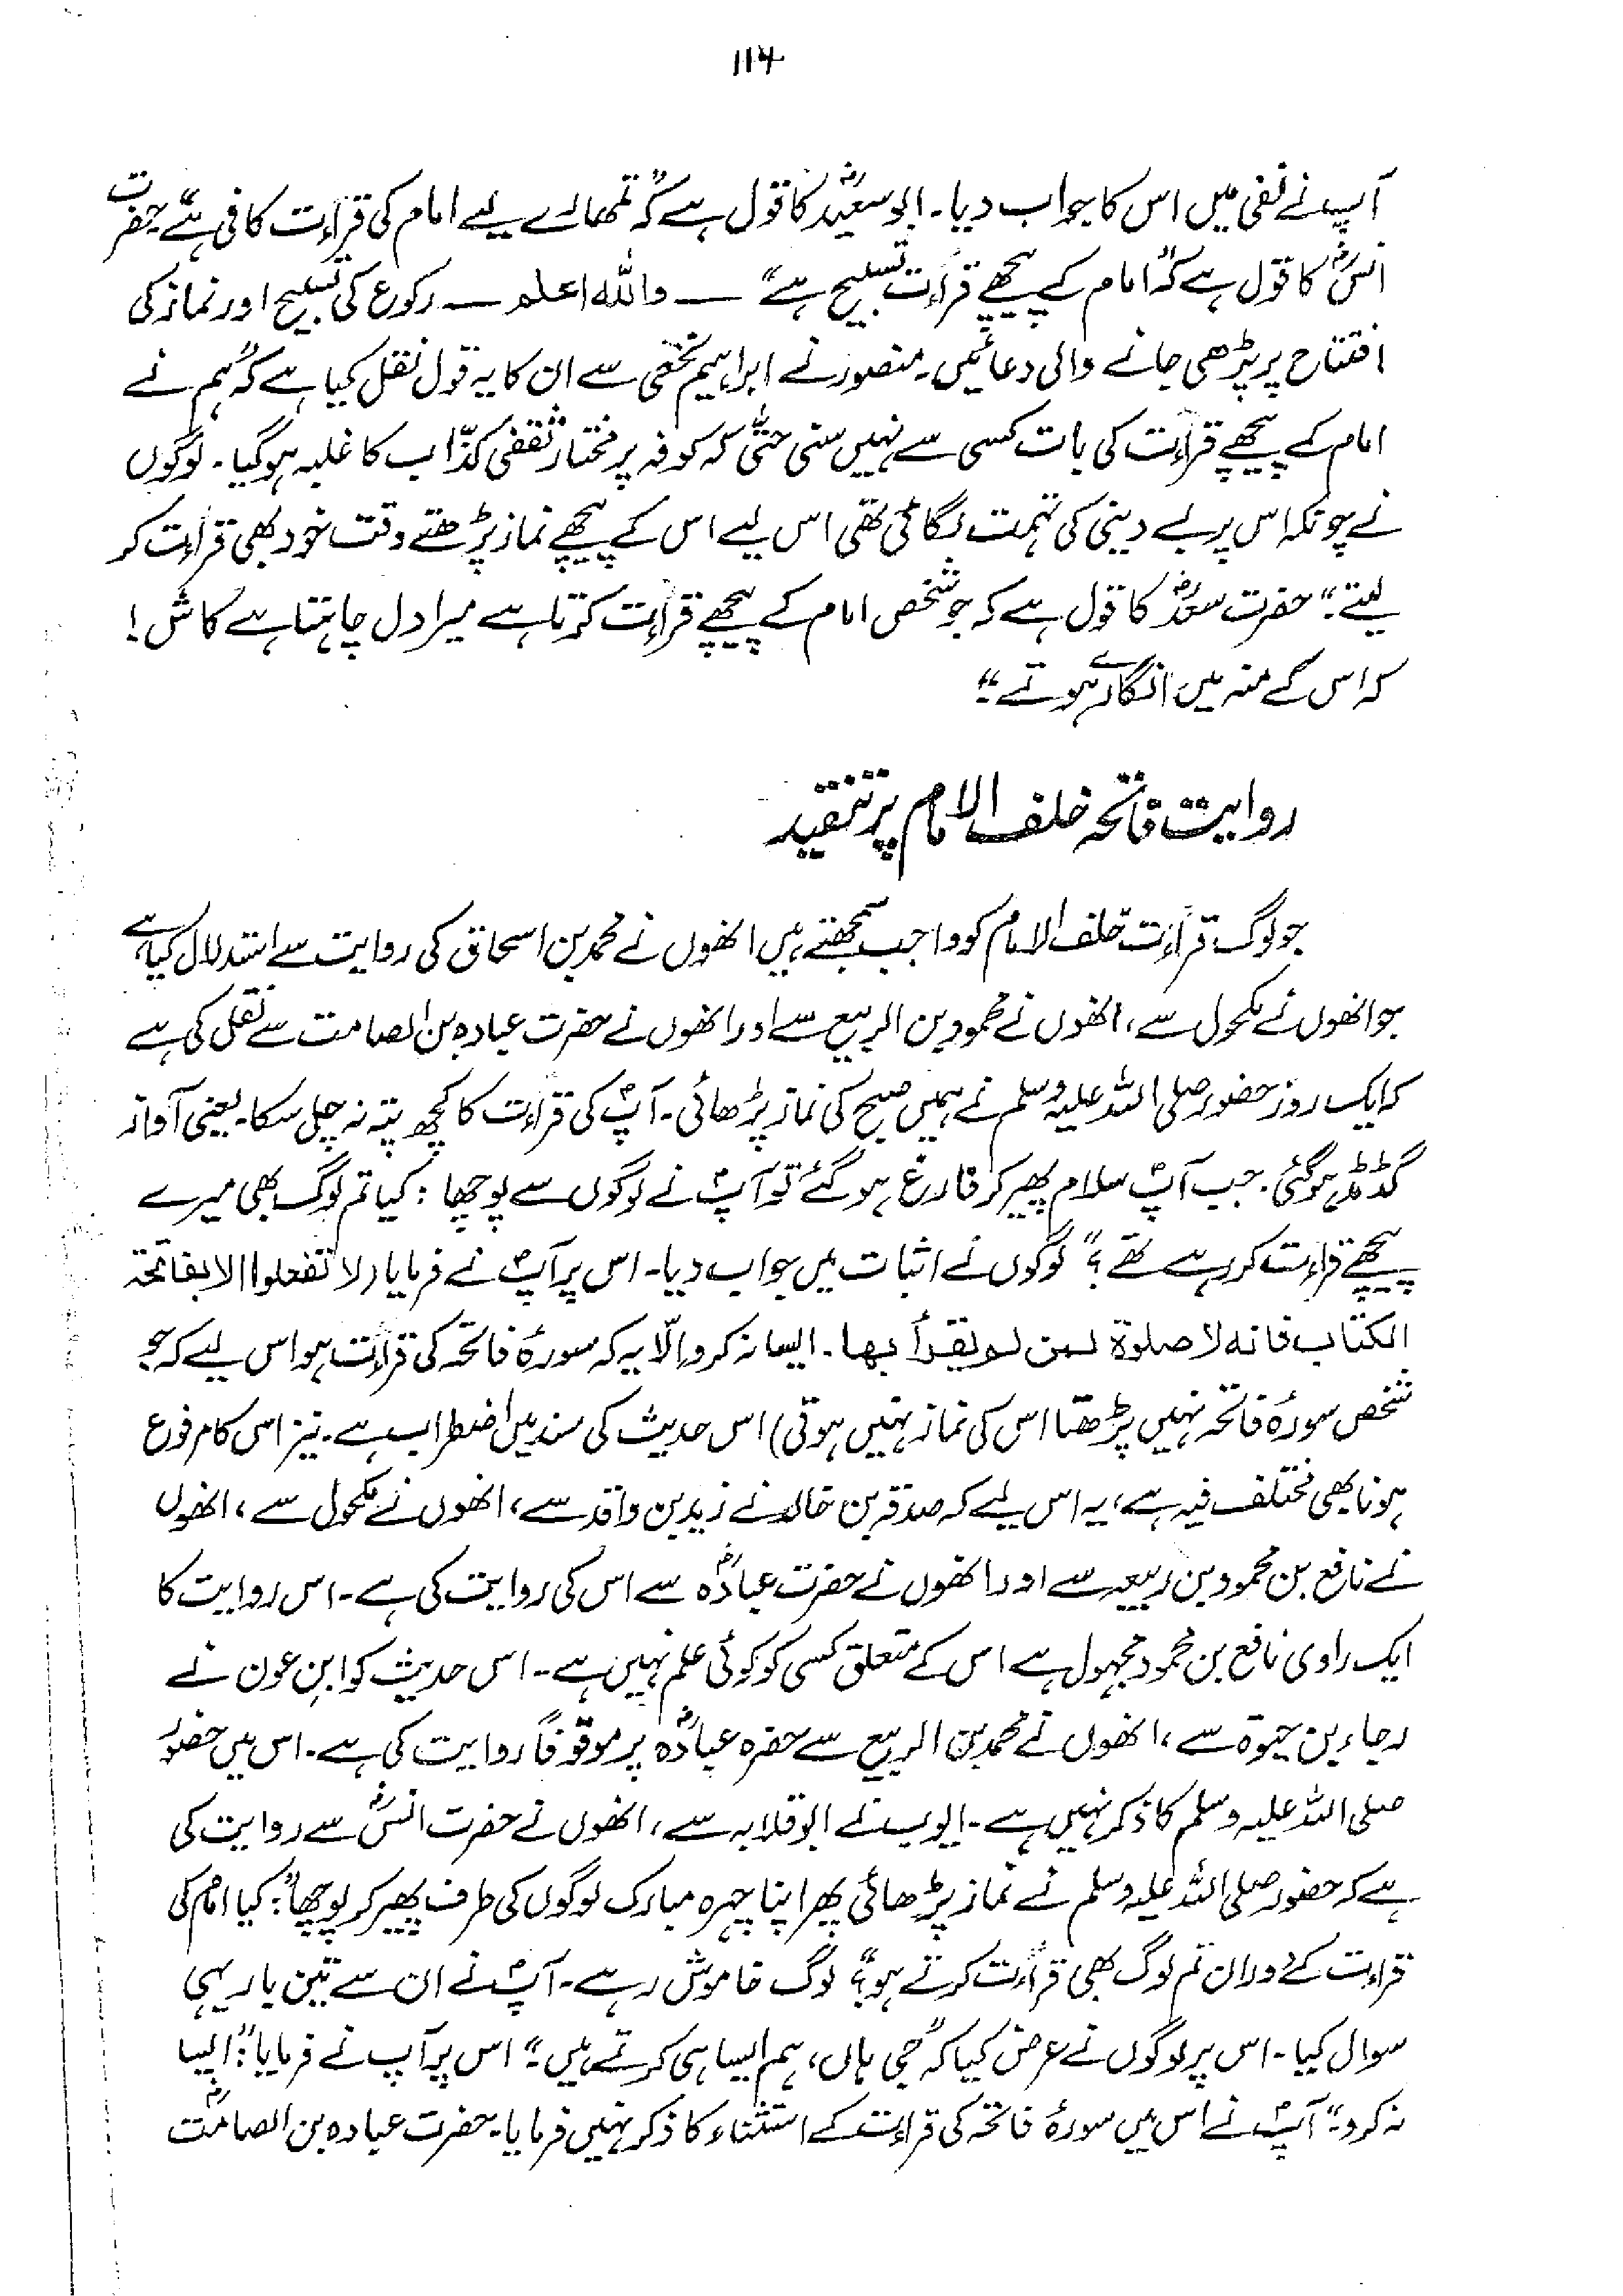 ۱۱۴
آپ نے نفی میں اس کا جواب دیا۔ ابو سعیدؓ کا قول ہے کہ "تمھارے لیے امام کی قرأت کافی ہے" حضرت
انسؓ کا قول ہے کہ "امام کے پیچھے قرأت تسبیح ہے" ـــ واللہ اعلم ـــ رکوع کی تسبیح اور نماز کی
افتتاح پر پڑھی جانے والی دعائیں۔ منصور نے ابراہیم نخعی سے ان کا یہ قول نقل کیا ہے کہ "ہم نے
امام کے پیچھے قرأت کی بات کسی سے نہیں سنی حتیٰ کہ کوفہ پر مختار ثقفی کذّاب کا غلبہ ہوگیا۔ لوگوں
نے چونکہ اس پر بے دینی کی تہمت لگائی تھی اس لیے اس کے پیچھے نماز پڑھتے وقت خود بھی قرأت کر
لیتے۔" حضرت سعدؓ کا قول ہے کہ جو شخص امام کے پیچھے قرأت کرتا ہے میرا دل چاہتا ہے کاش!
کہ اس کے منہ میں انگارے ہوتے۔"
روایت فاتحہ خلف الامام پر تنقید
جو لوگ قرأت خلف الامام کو واجب سمجھتے ہیں انھوں نے محمد بن اسحاق کی روایت سے استدلال کیا ہے
جو انھوں نے مکحول سے، انھوں نے محمود بن الربیع سے اور انھوں نے حضرت عبادہ بن الصامت سے نقل کی ہے
کہ ایک روز حضور صلی اللہ علیہ وسلم نے ہمیں صبح کی نماز پڑھائی۔ آپؐ کی قرأت کا کچھ پتہ نہ چل سکا۔ یعنی آواز
گڈمڈ ہوگئی۔ جب آپؐ سلام پھیر کر فارغ ہو گئے تو آپؐ نے لوگوں سے پوچھا: کیا تم لوگ بھی میرے
پیچھے قرأت کر رہے تھے؟" لوگوں نے اثبات میں جواب دیا۔ اس پر آپؐ نے فرمایا (لا تفعلوا الا بفاتحۃ
الکتاب فانہ لا صلوۃ لمن لم یقرأ بھا۔ ایسا نہ کرو اِلّا یہ کہ سورۂ فاتحہ کی قرأت ہو اس لیے کہ جو
شخص سورۂ فاتحہ نہیں پڑھتا اس کی نماز نہیں ہوتی) اس حدیث کی سند میں اضطراب ہے۔ نیز اس کا مرفوع
ہونا بھی مختلف فیہ ہے، یہ اس لیے کہ صدقہ بن خالد نے زید بن واقد سے، انھوں نے مکحول سے، انھوں
نے نافع بن محمود بن ربیعہ سے اور انھوں نے حضرت عبادہؓ سے اس کی روایت کی ہے۔ اس روایت کا
ایک راوی نافع بن محمود مجہول ہے اس کے متعلق کسی کو کوئی علم نہیں ہے۔ اس حدیث کو ابن عون نے
رجاء بن حیوۃ سے، انھوں نے محمد بن الربیع سے حضرہ عبادہؓ پر موقوفاً روایت کی ہے۔ اس میں حضورؐ
صلی اللہ علیہ وسلم کا ذکر نہیں ہے۔ ایوب نے ابوقلابہ سے، انھوں نے حضرت انسؓ سے روایت کی
ہے کہ حضور صلی اللہ علیہ وسلم نے نماز پڑھائی پھر اپنا چہرہ مبارک لوگوں کی طرف پھیر کر پوچھا: "کیا امام کی
قرأت کے دوران تم لوگ بھی قرأت کرتے ہو؟" لوگ خاموش رہے۔ آپؐ نے ان سے تین بار یہی
سوال کیا۔ اس پر لوگوں نے عرض کیا کہ "جی ہاں، ہم ایسا ہی کرتے ہیں۔" اس پر آپ نے فرمایا: "ایسا
نہ کرو۔" آپؐ نے اس میں سورۂ فاتحہ کی قرأت کے استثناء کا ذکر نہیں فرمایا۔ حضرت عبادہ بن الصامتؓ